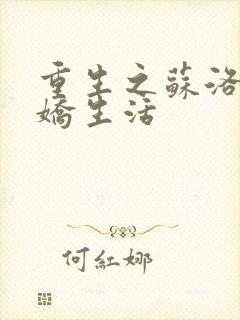 重生之蘇洛
嬌生活
何紅娜